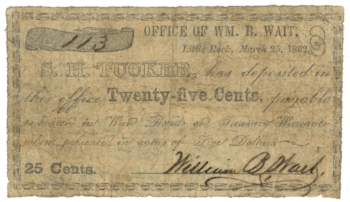 113
OFFICE OF WM. B. WAIT,
Little Rock, March 25, 1862.
S. H. TUCKER, has deposited in
this office Twenty-five Cents, payable
in War Bonds and Treasury Warrants
when presented in sums of Five Dollars
25 Cents.
William B. Wait